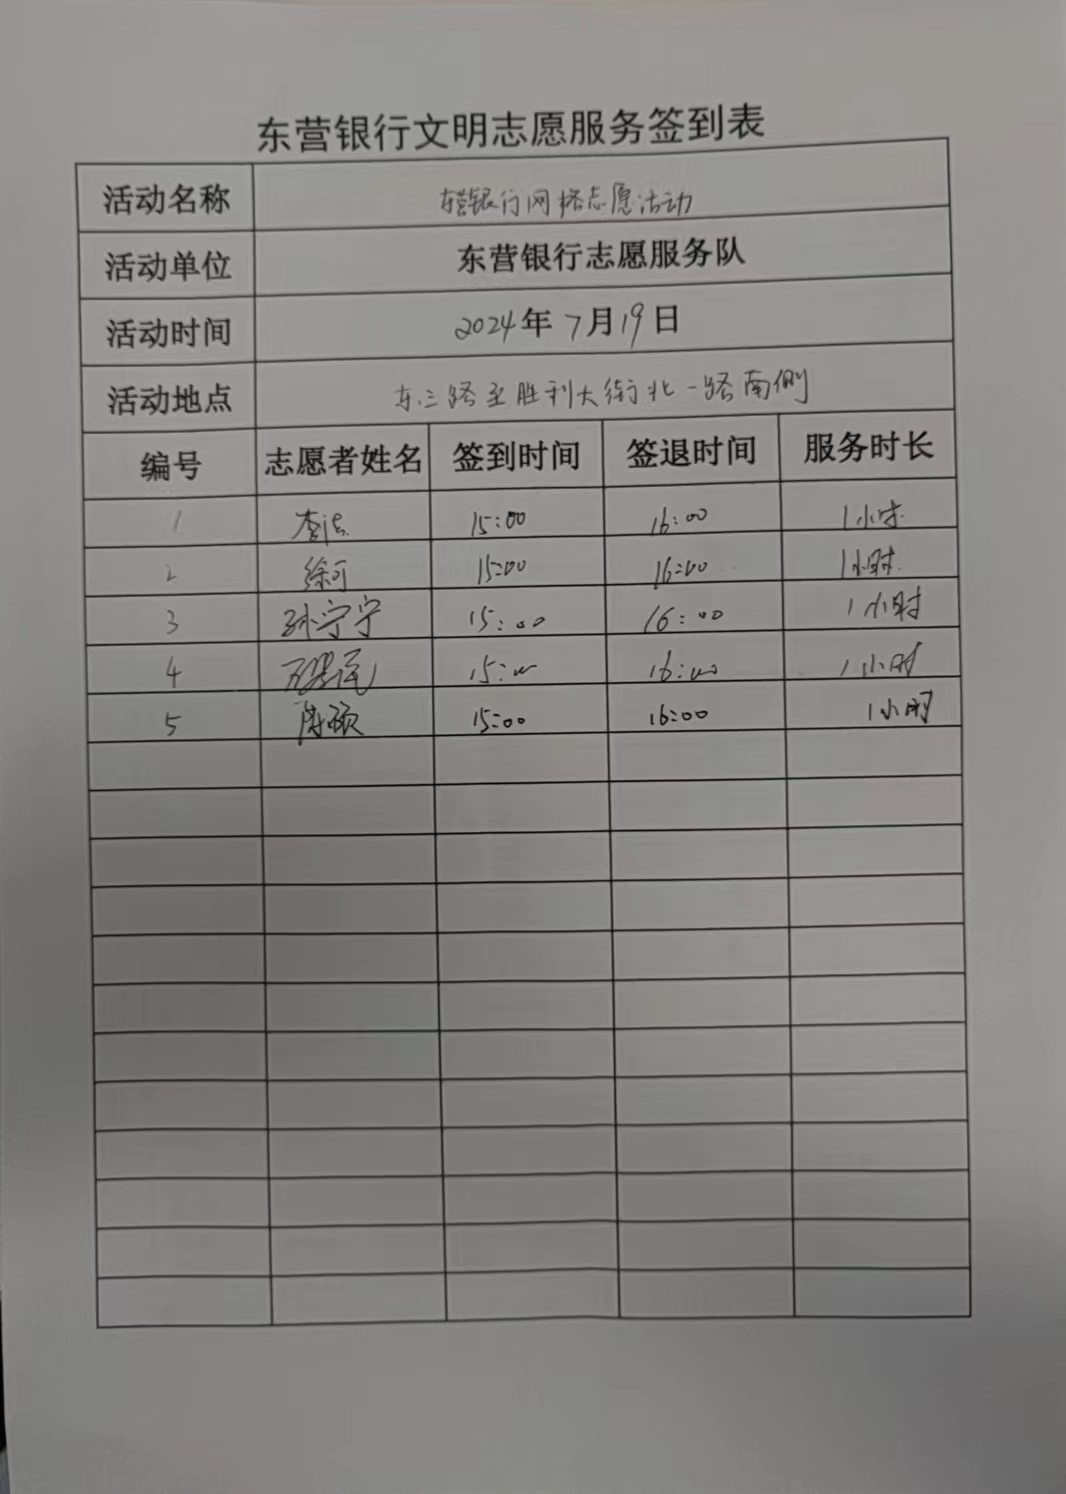 东营银行文明志愿服务签到表
活动名称 东营银行网格志愿活动
活动单位 东营银行志愿服务队
活动时间 2024年7月19日
活动地点 东三路至胜利大街北一路南侧
编号 志愿者姓名 签到时间 签退时间 服务时长
1 15:00 16:00 1小时
2 徐可 15:00 16:00 1小时
3 孙宁宁 15:00 16:00 1小时
4 15:00 16:00 1小时
5 陈硕 15:00 16:00 1小时